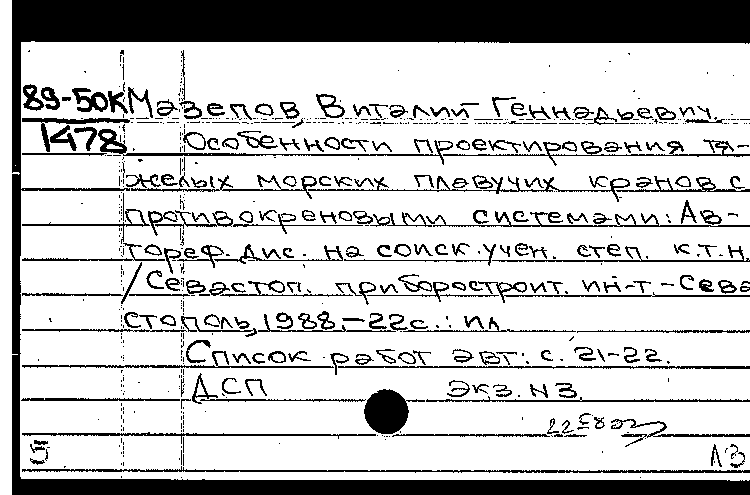 89-50К Мазепов, Виталий Геннадьевич.
1478 Особенности проектирования тя-
желых морских плавучих кранов с
противокреновыми системами: Ав-
тореф. дис. на соиск. учен. степ. к.т.н.
/Севастоп. приборостроит. ин-т.-Сева
стополь, 1988.-22с.: ил.
Список работ авт: с. 21-22.
ДСП экз. N3.
5